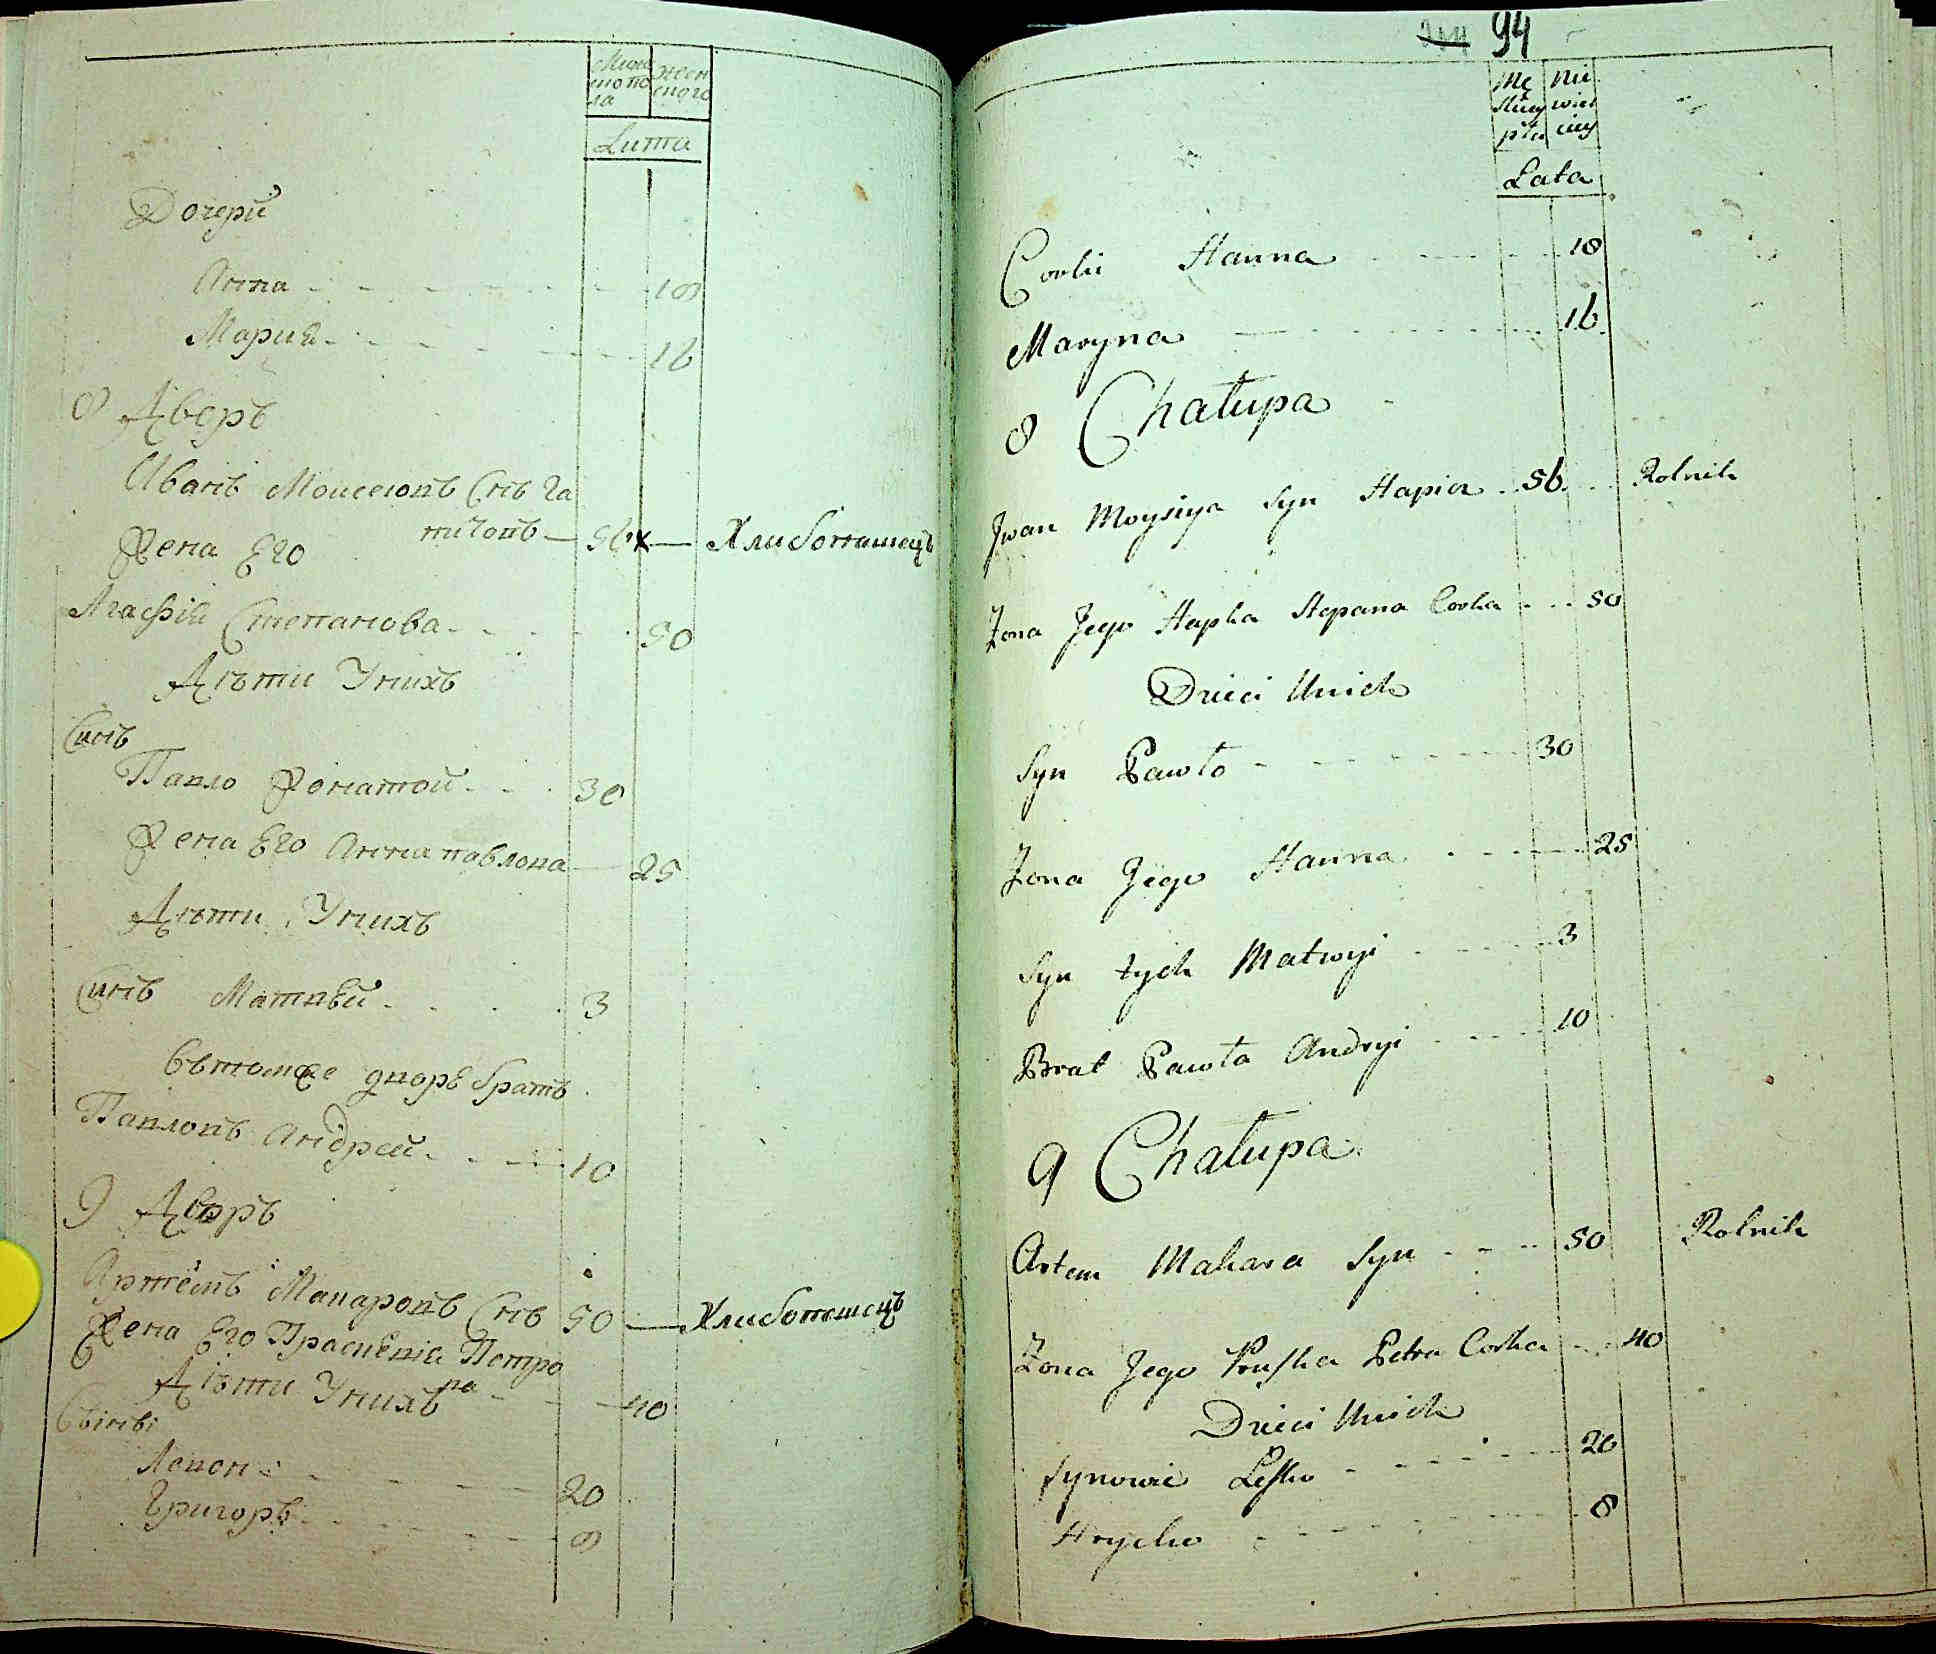 Мужескополa
Женского
Лита
Дочери
Анна 18
Мария 16
8 Дворъ
Иванъ Моисеювъ Снъ Га
пичовъ 56 Хлиборашецъ
Жена Его
Агафія Степанова 50
Дѣти Унихъ
Синъ
Павло Жонатой 30
Жена Его Анна павлова 25
Дѣти Унихъ
Синъ Матвѣй 3
Вътомже дворѣ братъ
Павловъ Андрей 10
9 Дворъ
Артёмъ Макаровъ Снъ 50 Хлиборашецъ
Жена Его Праскевія Петро
ва 40
Дѣти Унихъ
Сыни
Левон 20
Григоръ 8
94
Mę Nie
skiey wieś
płci ciey
Lata
Corki Hanna 18
Maryna 16
8 Chałupa
Jwan Moysiya Syn Hapicz 56 Rolnik
Zona Jego Hapka Stepana Corka 50
Dzieci Unich
Syn Pawło 30
Zona Jego Hanna 25
Syn tych Matwyi 3
Brat Pawła Andryi 10
9 Chałupa
Artem Makara Syn 50 Rolnik
Zona Jego Pruska Petra Corka 40
Dzieci Unich
synowie Lesko 20
Hryćko 8